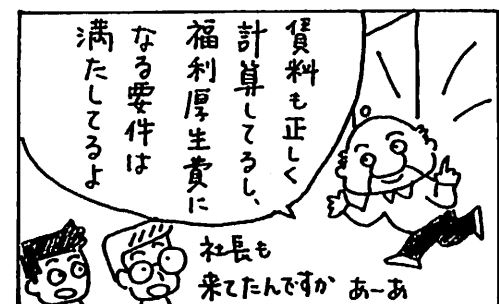 賃料も正しく
計算してるし、
福利厚生費に
なる要件は
満たしてるよ
社長も
来てたんですか
あ～あ